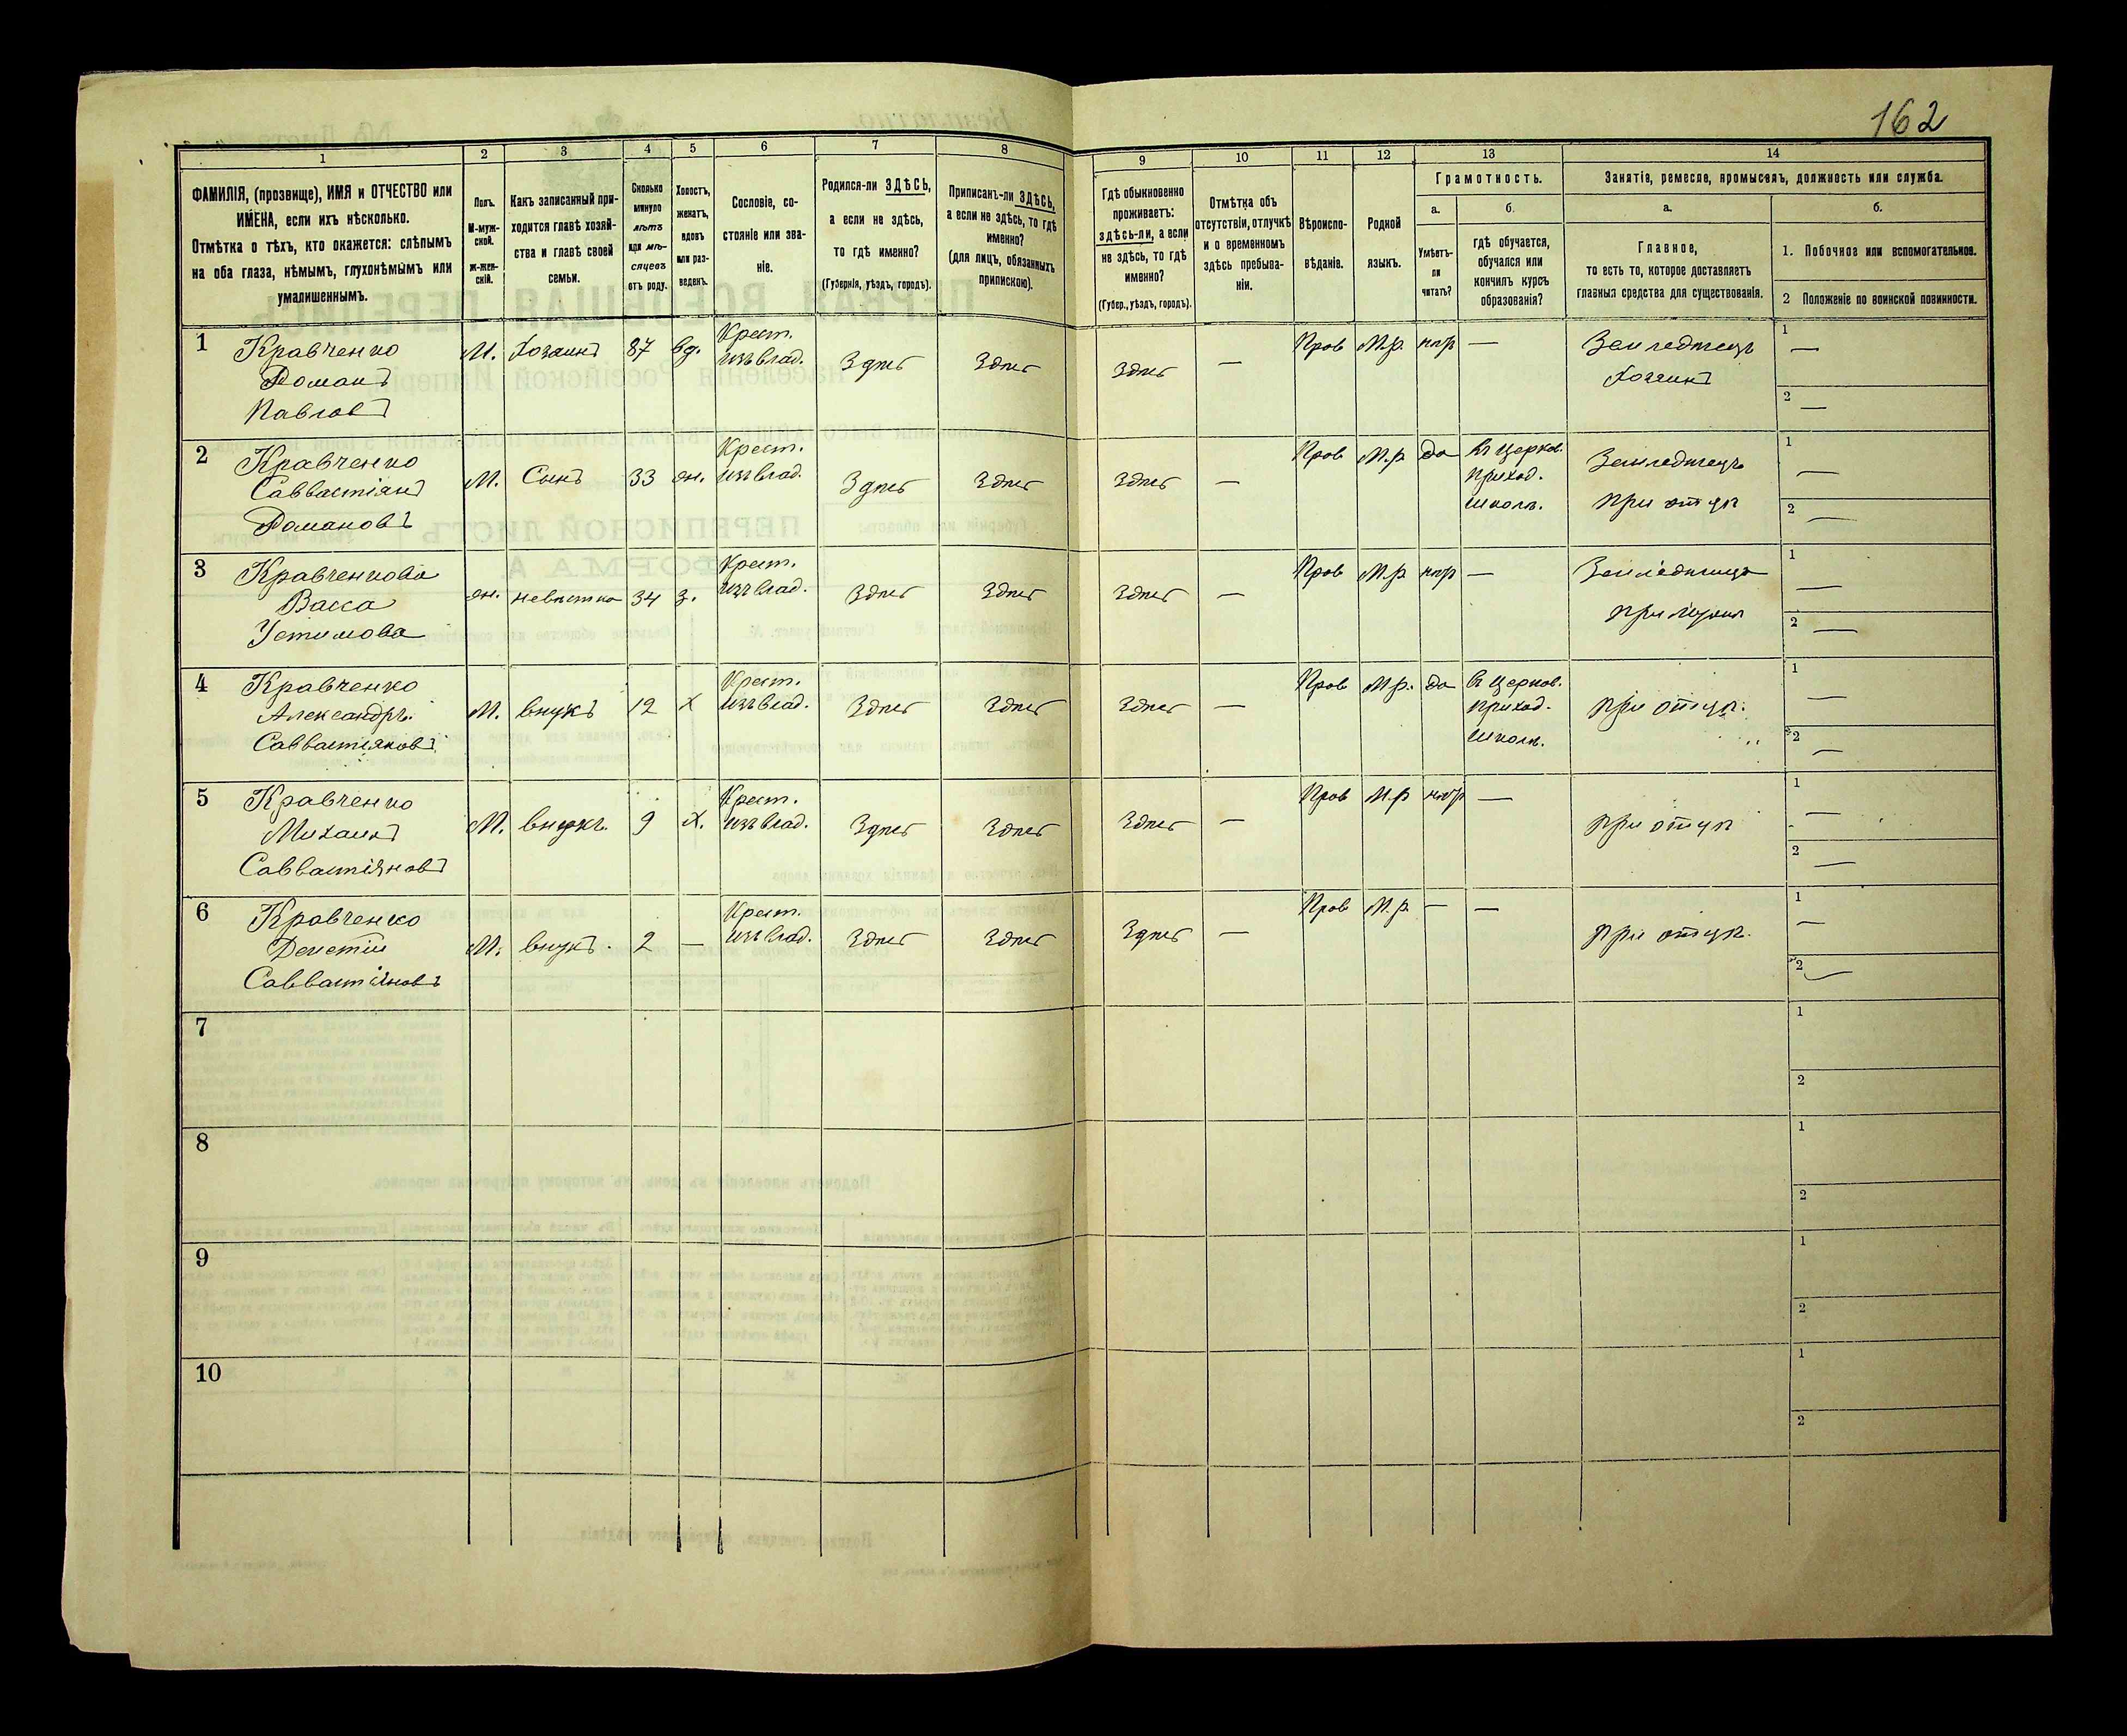 162
1 2 3 4 5 6 7 8 9 10 11 12 13 14
ФАМИЛІЯ, (прозвище), ИМЯ и ОТЧЕСТВО или
ИМЕНА, если ихъ нѣсколько.
Отмѣтка о тѣхъ, кто окажется: слѣпымъ
на оба глаза, нѣмымъ, глухонѣмымъ или
умалишеннымъ.
Полъ.
М-муж-
ской.
ж-жен-
скій.
Какъ записанный при-
ходится главѣ хозяй-
ства и главѣ своей
семьи.
Сколько
минуло
лѣтъ
или мѣ-
сяцевъ
отъ роду.
Холостъ,
женатъ,
вдовъ
или раз-
веденъ.
Сословіе, со-
стояніе или зва-
ніе.
Родился-ли ЗДѢСЬ,
а если не здѣсь,
то гдѣ именно?
(Губернія, уѣздъ, городъ).
Приписанъ-ли ЗДѢСЬ,
а если не здѣсь, то гдѣ
именно?
(для лицъ, обязанныхъ
припискою).
Гдѣ обыкновенно
проживаетъ:
здѣсь-ли, а если
не здѣсь, то гдѣ
именно?
(Губер., уѣздъ, городъ).
Отмѣтка объ
отсутствіи, отлучкѣ
и о временномъ
здѣсь пребыва-
ніи.
Вѣроиспо-
вѣданіе.
Родной
языкъ.
Грамотность.
а.
Умѣетъ-
ли
читать?
б.
гдѣ обучается,
обучался или
кончилъ курсъ
образованія?
Занятіе, ремесло, промыселъ, должность или служба.
а.
Главное,
то есть то, которое доставляетъ
главныя средства для существованія.
б.
1. Побочное или вспомогательное.
2 Положеніе по воинской повинности.
1
Кравченко
Романъ
Павловъ
М. Хозяинъ 87 вд.
Крест.
изъ влад.
Здѣсь Здѣсь Здѣсь —
Пров М.р. нѣтъ —
Земледѣлецъ
Хозяинъ
1 —
2 —
2
Кравченко
Савватіянъ
Романовъ
М. Сынъ 33 ж.
Крест.
изъ влад.
Здѣсь Здѣсь Здѣсь —
Пров М.р да
въ церков.
приход.
школѣ.
Земледѣлецъ
при отцѣ
1 —
2 —
3
Кравченкова
Васса
Устимова
ж. невѣстка 34 з.
Крест.
изъ влад.
Здѣсь Здѣсь Здѣсь —
Пров М.р нѣтъ —
при мужѣ
1 —
2 —
4
Кравченко
Александръ
Саввастіяновъ
М. внукъ 12 х
Крест.
изъ влад.
Здѣсь Здѣсь Здѣсь —
Пров М.р. да
въ церков.
приход.
школѣ.
при отцѣ.
1 —
2 —
5
Кравченко
Михаилъ
Саввастіяновъ
М. внукъ. 9 х.
Крест.
изъ влад.
Здѣсь Здѣсь Здѣсь —
Пров М.р нѣтъ —
при отцѣ
1 —
2 —
6
Кравченко
Саввастіяновъ
М. внукъ. 2 —
Крест.
изъ влад.
Здѣсь Здѣсь Здѣсь —
Пров М.р. — —
при отцѣ.
1 —
2 —
7
1
2
8
1
2
9
1
2
10
1
2